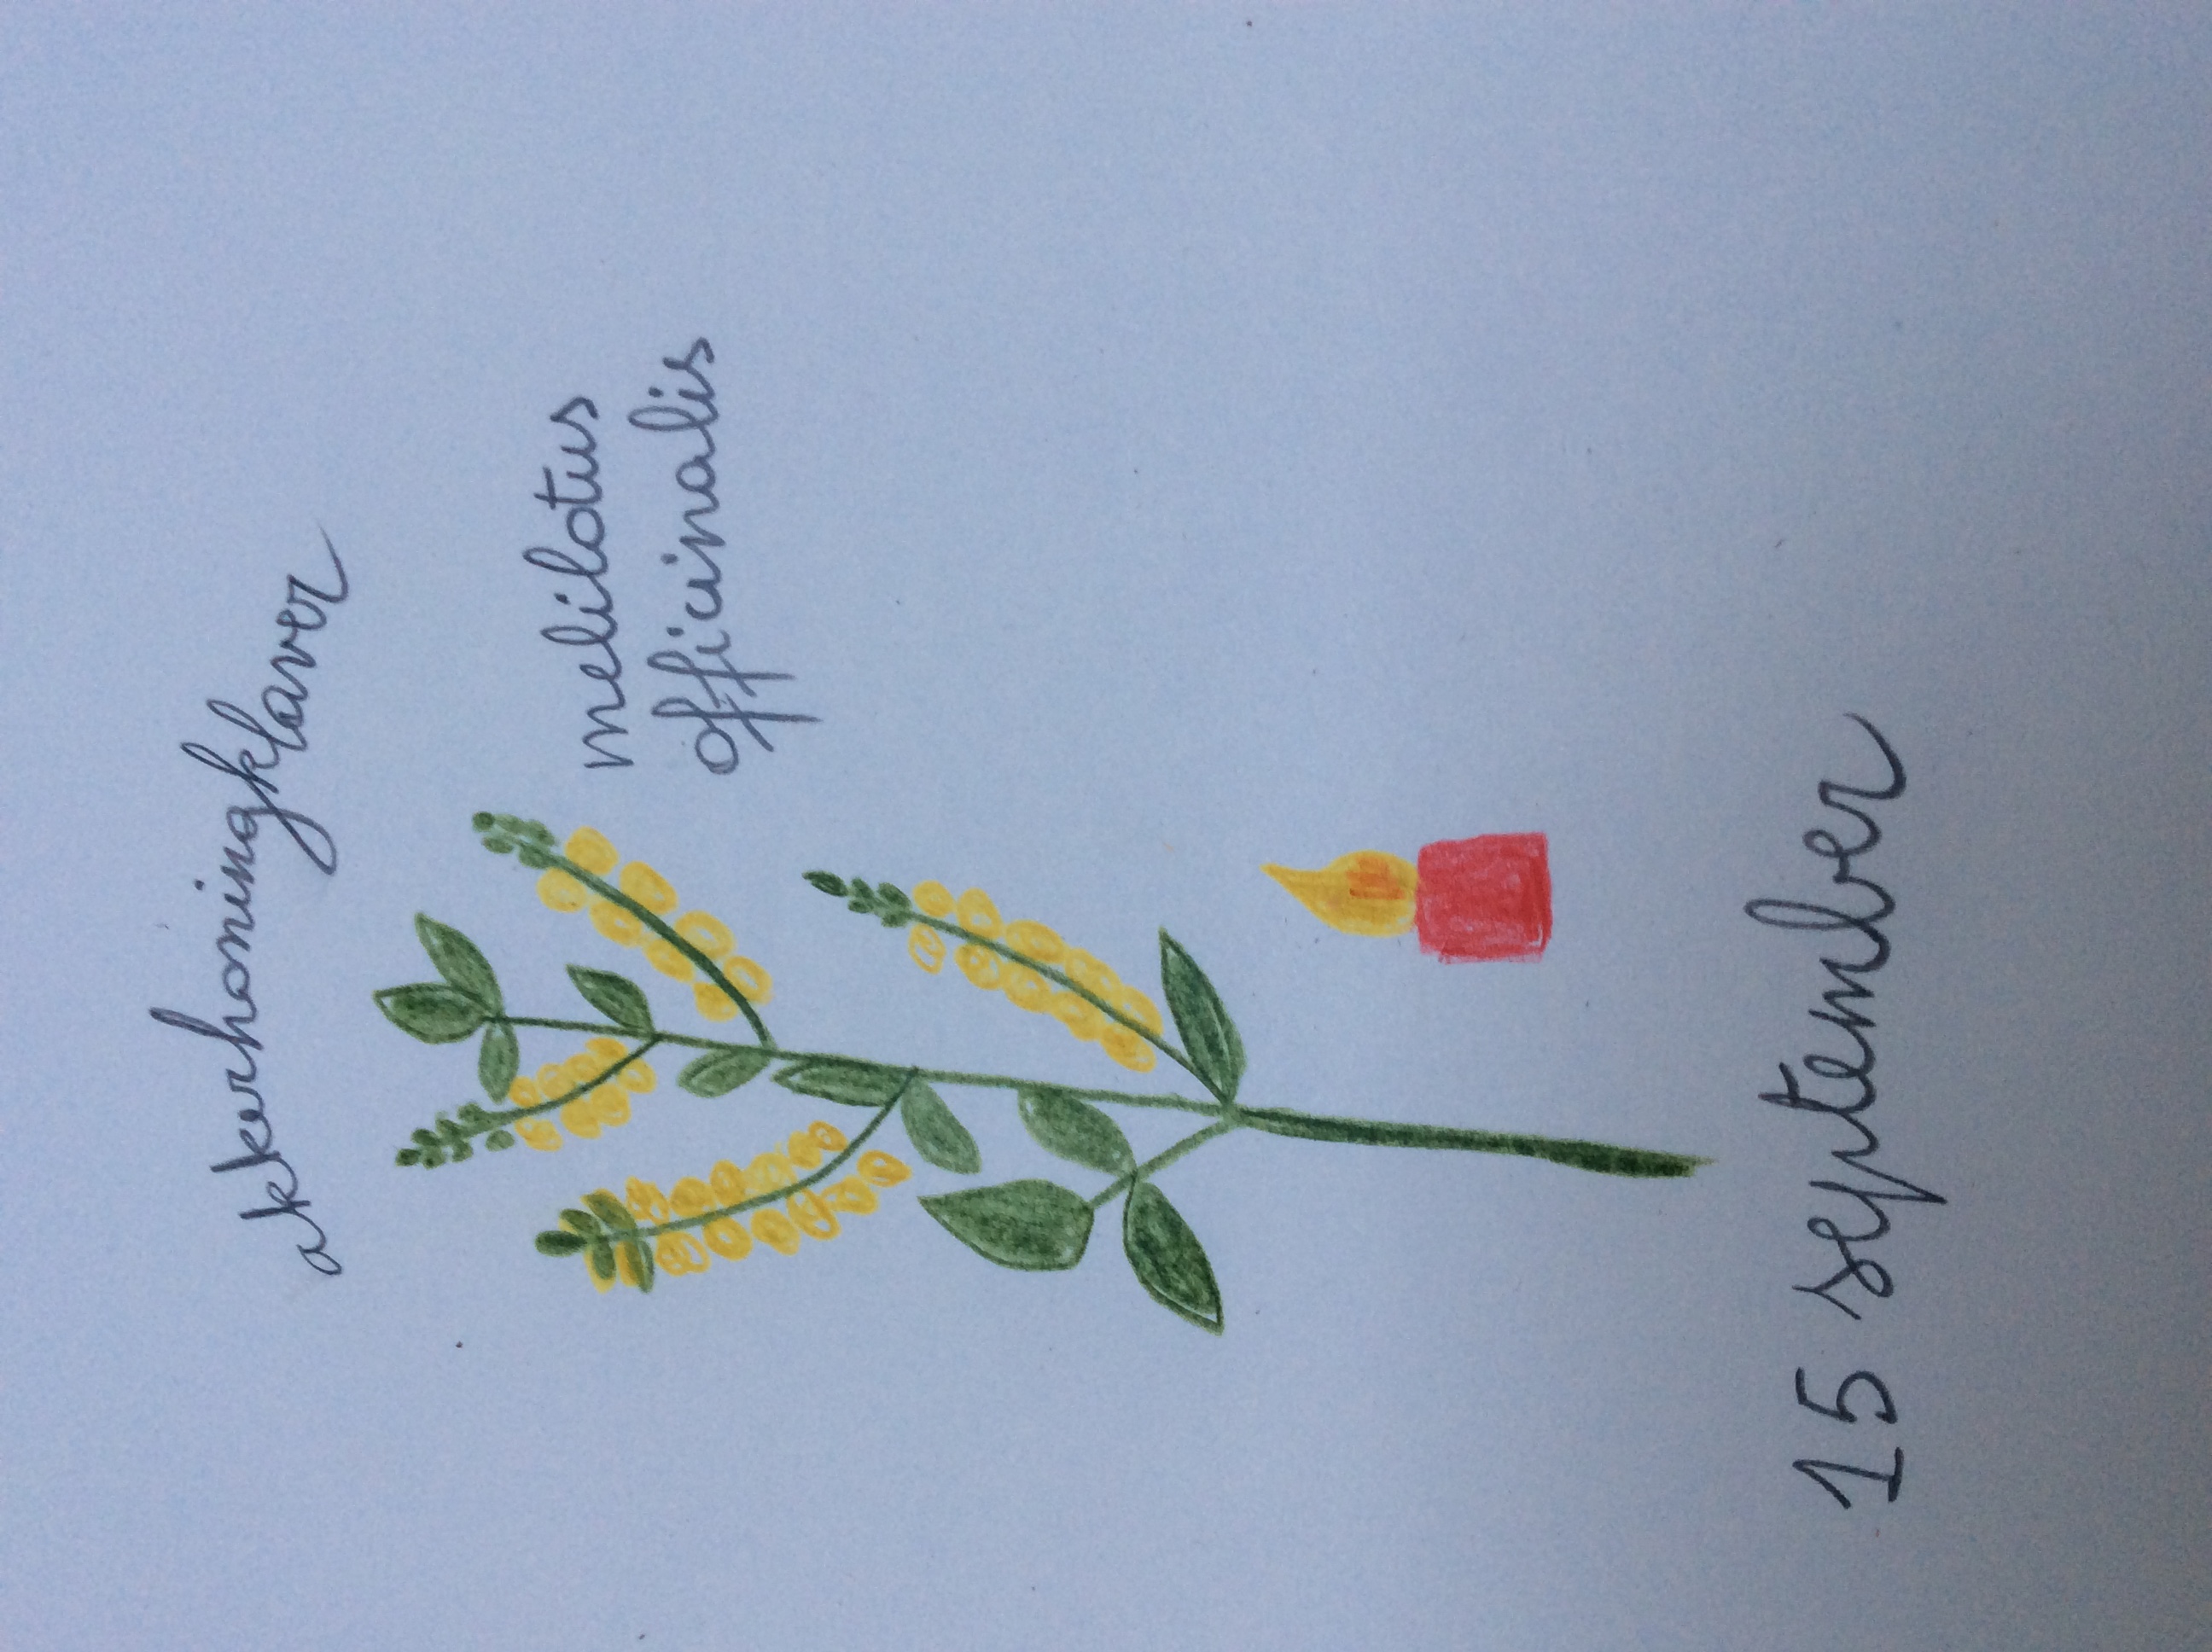 akkerhoningklaver
melilotus
officinalis
15 september